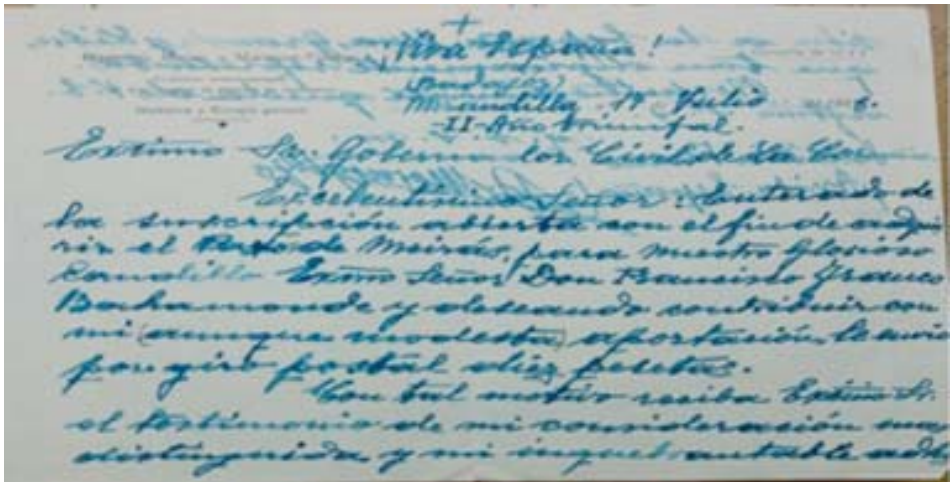 +
¡Viva España!
Mirandilla 19 Julio
II-Año Triunfal.
Exctmo Sr. Gobernador Civil de La Coruña
Excelentísimo Señor: Enterado de
la suscripción abierta con el fin de adqui
rir el Pazo de Meirás, para nuestro Glorioso
Caudillo Exctmo Señor Don Francisco Franco
Bahamonde y deseando contribuir con
mi (aunque modesta) aportación, le envio
por giro postal diez pesetas.
Con tal motivo reciba Exctmo Sr.
el testimonio de mi consideración mas
distinguida y mi inquebrantable adh